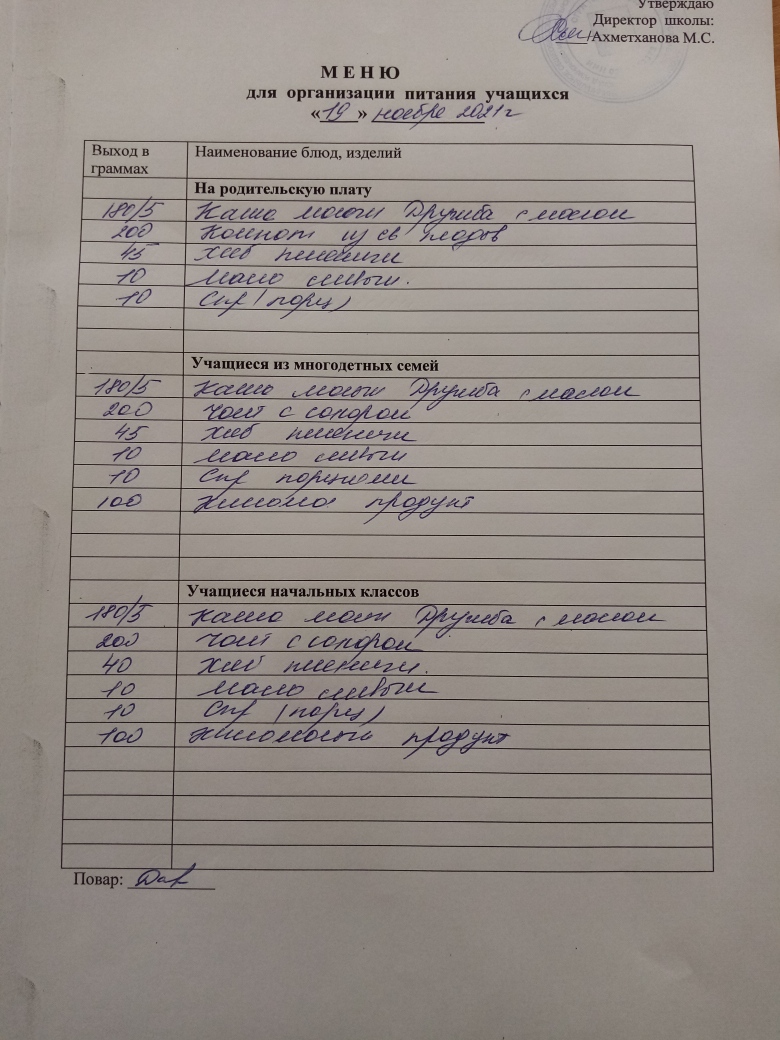 Утверждаю
Директор школы:
/Ахметханова М.С.
М Е Н Ю
для организации питания учащихся
«19» ноября 2021г
Выход в граммах Наименование блюд, изделий
На родительскую плату
180/5 Каша молочн Дружба с маслом
200 Компот из св плодов
45 Хлеб пшеничн
10 Масло сливочн.
10 Сыр (порц)
Учащиеся из многодетных семей
180/5 Каша молочн Дружба с маслом
200 Чай с сахаром
45 Хлеб пшеничн
10 Масло сливочн
10 Сыр порциями
100 Кисломол продукт
Учащиеся начальных классов
180/5 Каша молочн Дружба с маслом
200 Чай с сахаром
40 Хлеб пшеничн.
10 Масло сливочн
10 Сыр (порц)
100 Кисломолочн продукт
Повар: